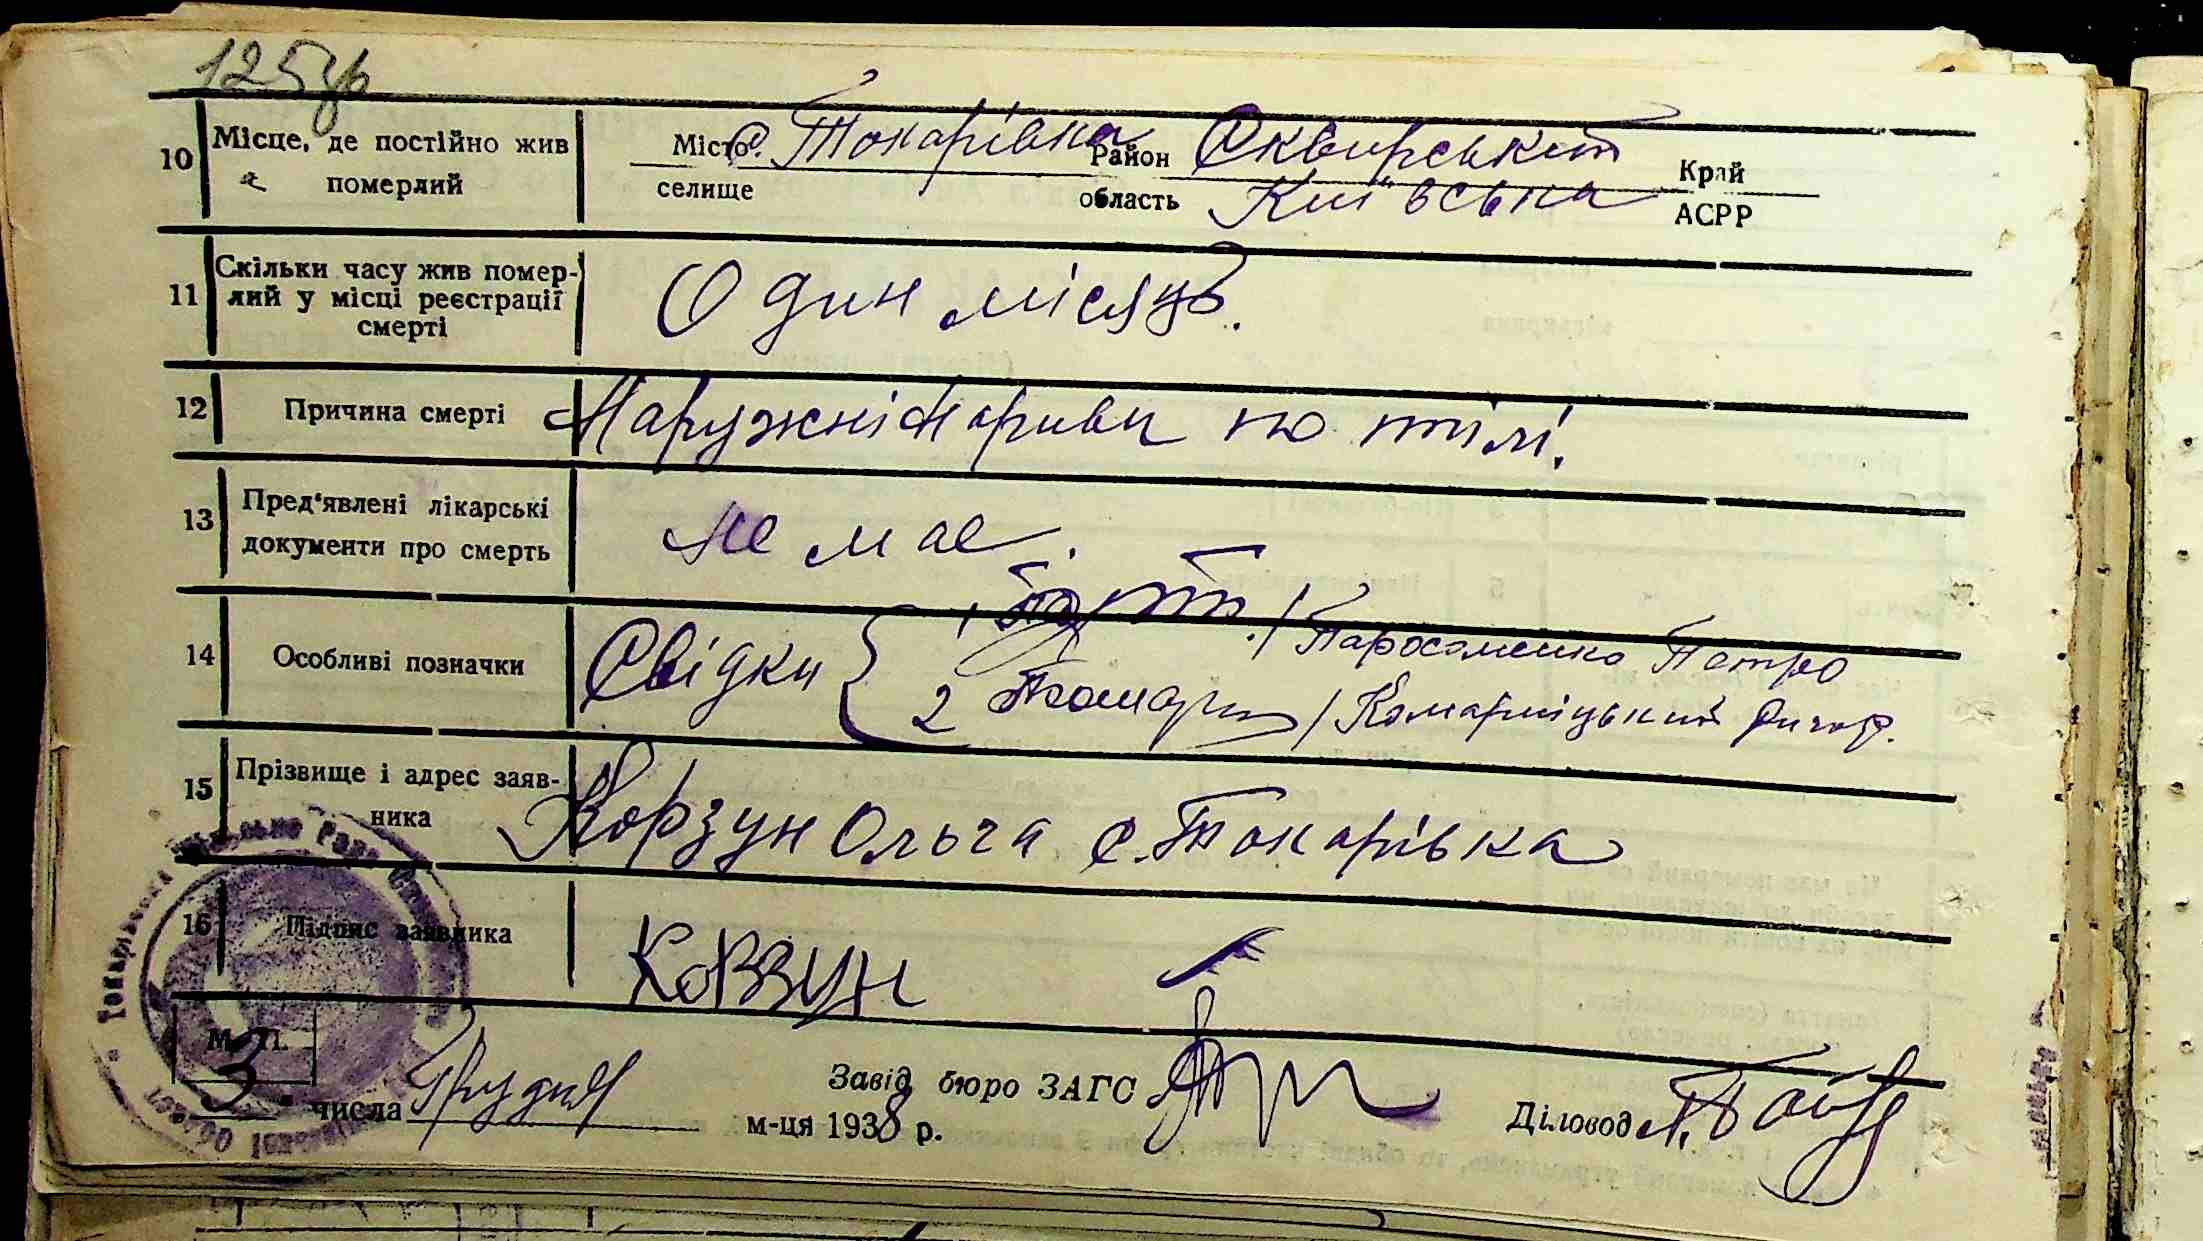 125
10 Місце, де постійно жив померлий
Місто с. Токарівка Район Сквирський Край
селище область Київська АСРР
11 Скільки часу жив помер-
лий у місці реєстрації
смерті
Один місяць.
12 Причина смерті Наружні Нариви по тілі.
13 Пред'явлені лікарські
документи про смерть
не має.
14 Особливі позначки Свідки
1 / Пархоменко Петро
2 / Комарніцький Григор.
15 Прізвище і адрес заяв-
ника
Корзун Ольга с. Токарівка
16 Підпис заявника Корзун
М. П.
3 числа Грудня м-ця 1938 р. Завід бюро ЗАГС Діловод